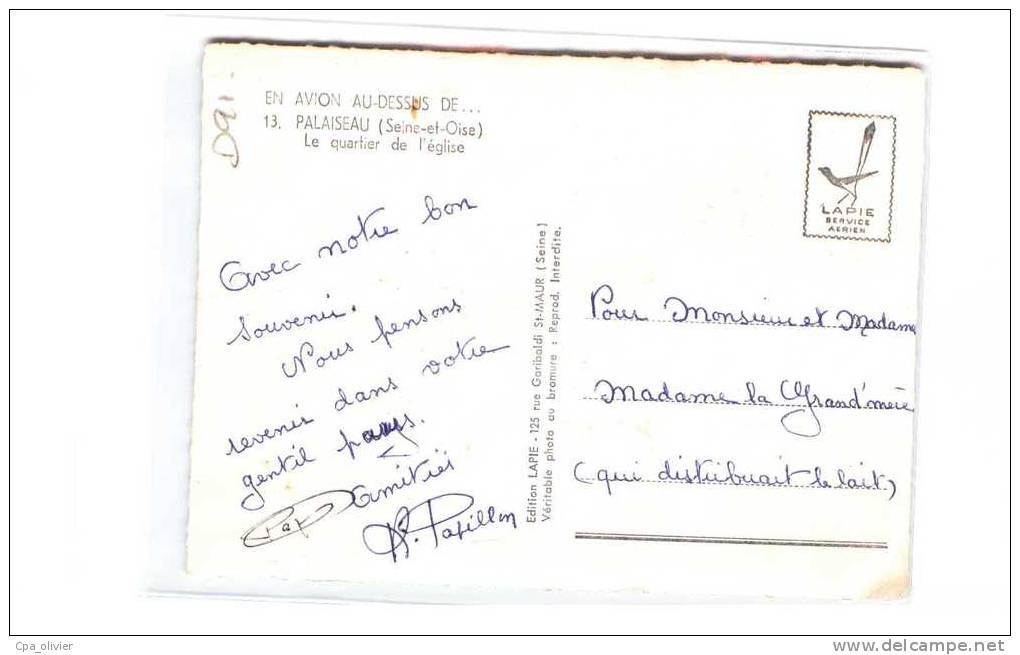 D91
EN AVION AU-DESSUS DE...
13. PALAISEAU (Seine-et-Oise)
Le quartier de l'église
LAPIE
SERVICE
AERIEN
Avec notre bon
Souvenir.
Nous pensons
revenir dans votre
gentil pays.
Amitiés
Papillon
Edition LAPIE - 125 rue Garibaldi St-MAUR (Seine)
Véritable photo au bromure : Reprod. Interdite.
Pour Monsieur et Madame
Madame la Grand'mère
(qui distribuait le lait)
Cpa_olivier
www.delcampe.net